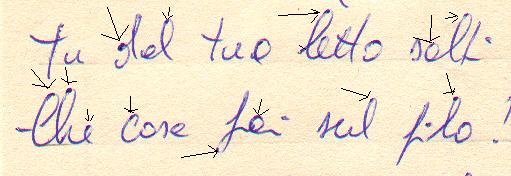 tu dal tuo letto salti
-Che cosa fai sul filo?